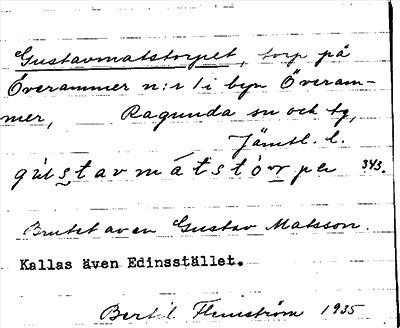 Gustavmatstorpet, torp på
Överammer n:r 1 i byn Överam-
mer, Ragunda sn och tg,
Jämtl. l.
gu̇stavmátstórpe 343.
Brutet av en Gustav Matsson.
Kallas även Edinsstället.
Bertil Flemström 1935